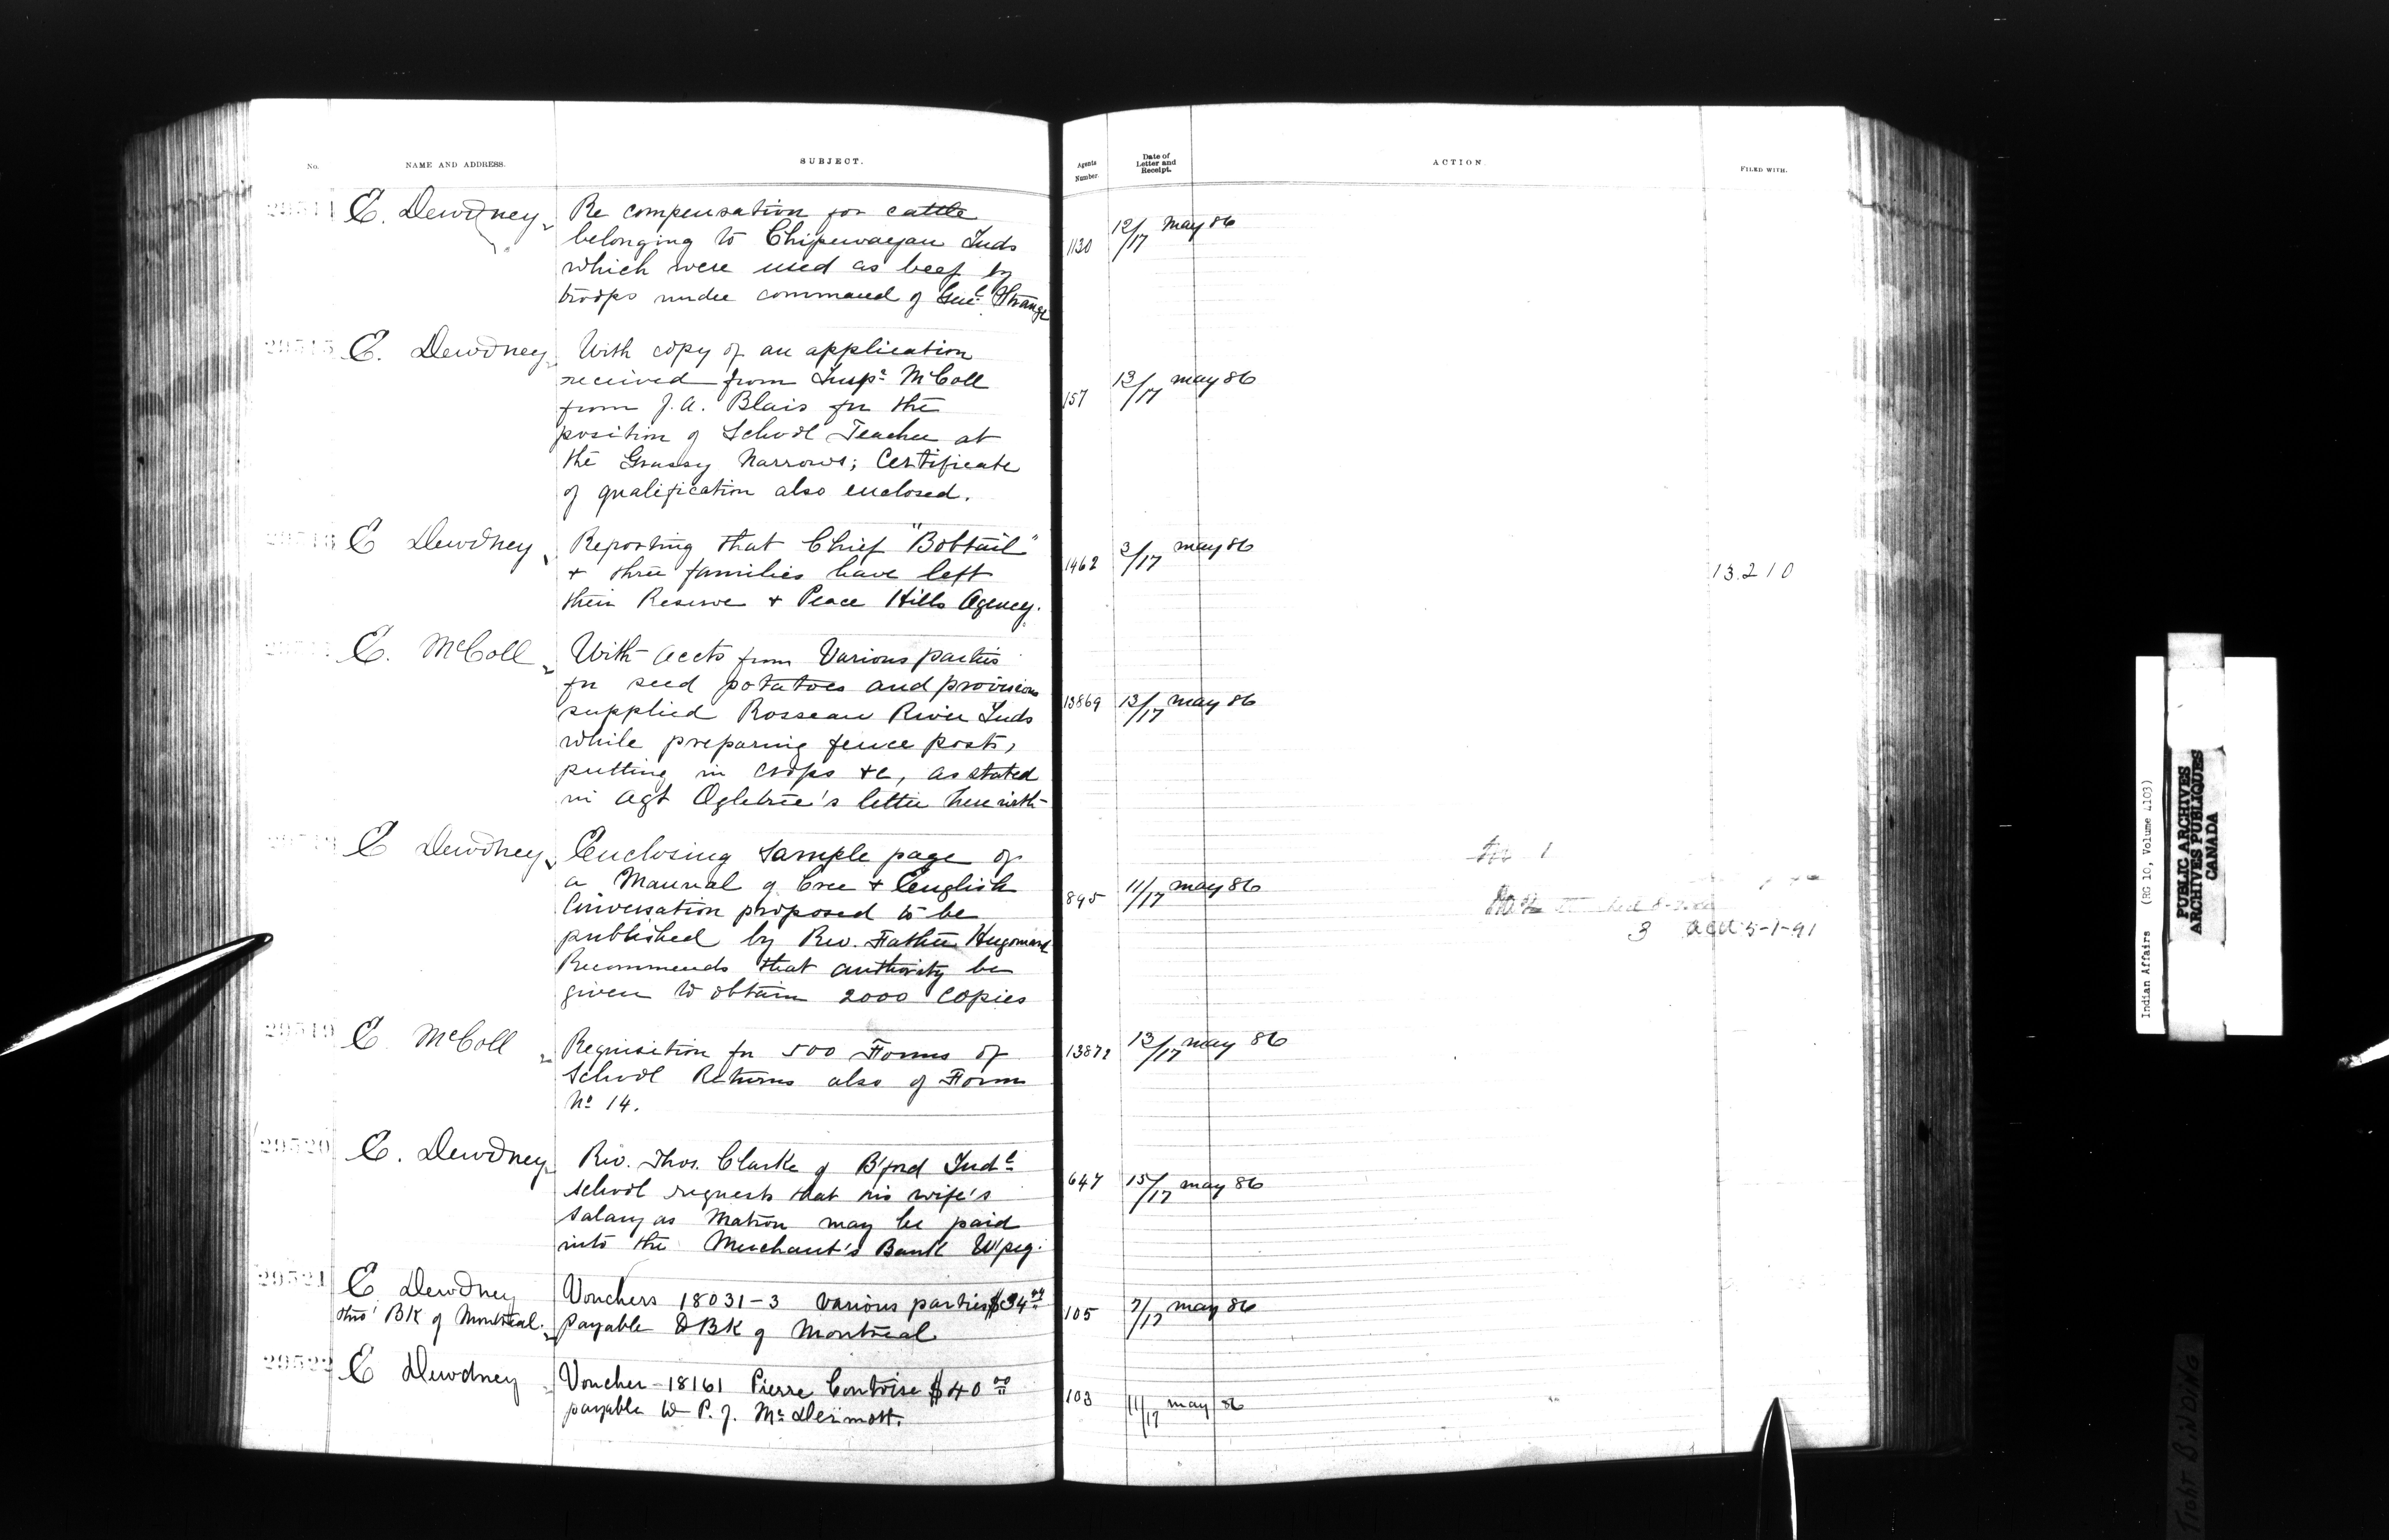 No.
NAME AND ADDRESS.
SUBJECT.
Agents Number.
Date of Letter and Receipt.
ACTION.
FILED WITH.
E. Dewdney
Re compensation for cattle
belonging to Chipewayan Inds
which were used as beef by
troops under command of Genl. Strange
1130
12/17 May 86
E. Dewdney
With copy of an application
received from Inspr McColl
from J.A. Blais for the
position of School Teacher at
the Grassy Narrows; Certificate
of qualification also enclosed.
157
13/17 May 86
E Dewdney
Reporting that Chief "Bobtail"
+ three families have left
their Reserve + Peace Hills Agency.
1462
3/17 May 86
13.210
E. McColl
With accts from Various parties
for seed potatoes and provisions
supplied Rosseau River Inds
while preparing fence posts,
putting in crops &c, as stated
in Agt Ogletree's letter herewith
13869
13/17 May 86
E Dewdney
Enclosing sample page of
a Manual of Cree + English
Conversation proposed to be
published by Rev. Father Hugonard
Recommends that authority be
given to obtain 2000 copies
895
11/17 May 86
3
5-1-91
29519
E McColl
Requisition for 500 Forms of
School Returns also of Form
No 14.
13872
13/17 May 86
29520
E. Dewdney
Rev. Thos. Clarke of B'ford Indl
school requests that his wife's
salary as Matron may be paid
into the Merchant's Bank W'peg.
647
15/17 May 86
29521
E Dewdney
thro' BK of Montreal.
Vouchers 18031-3 various parties
payable BK of Montreal.
105
7/17 May 86
29522
E Dewdney
Voucher 18161 Pierre Contoise $40.00
payable to P. J. McDermott.
103
11/17 May 86
Indian Affairs (RG 10, Volume 4103)
PUBLIC ARCHIVES
ARCHIVES PUBLIQUES
CANADA
Tight BINDING